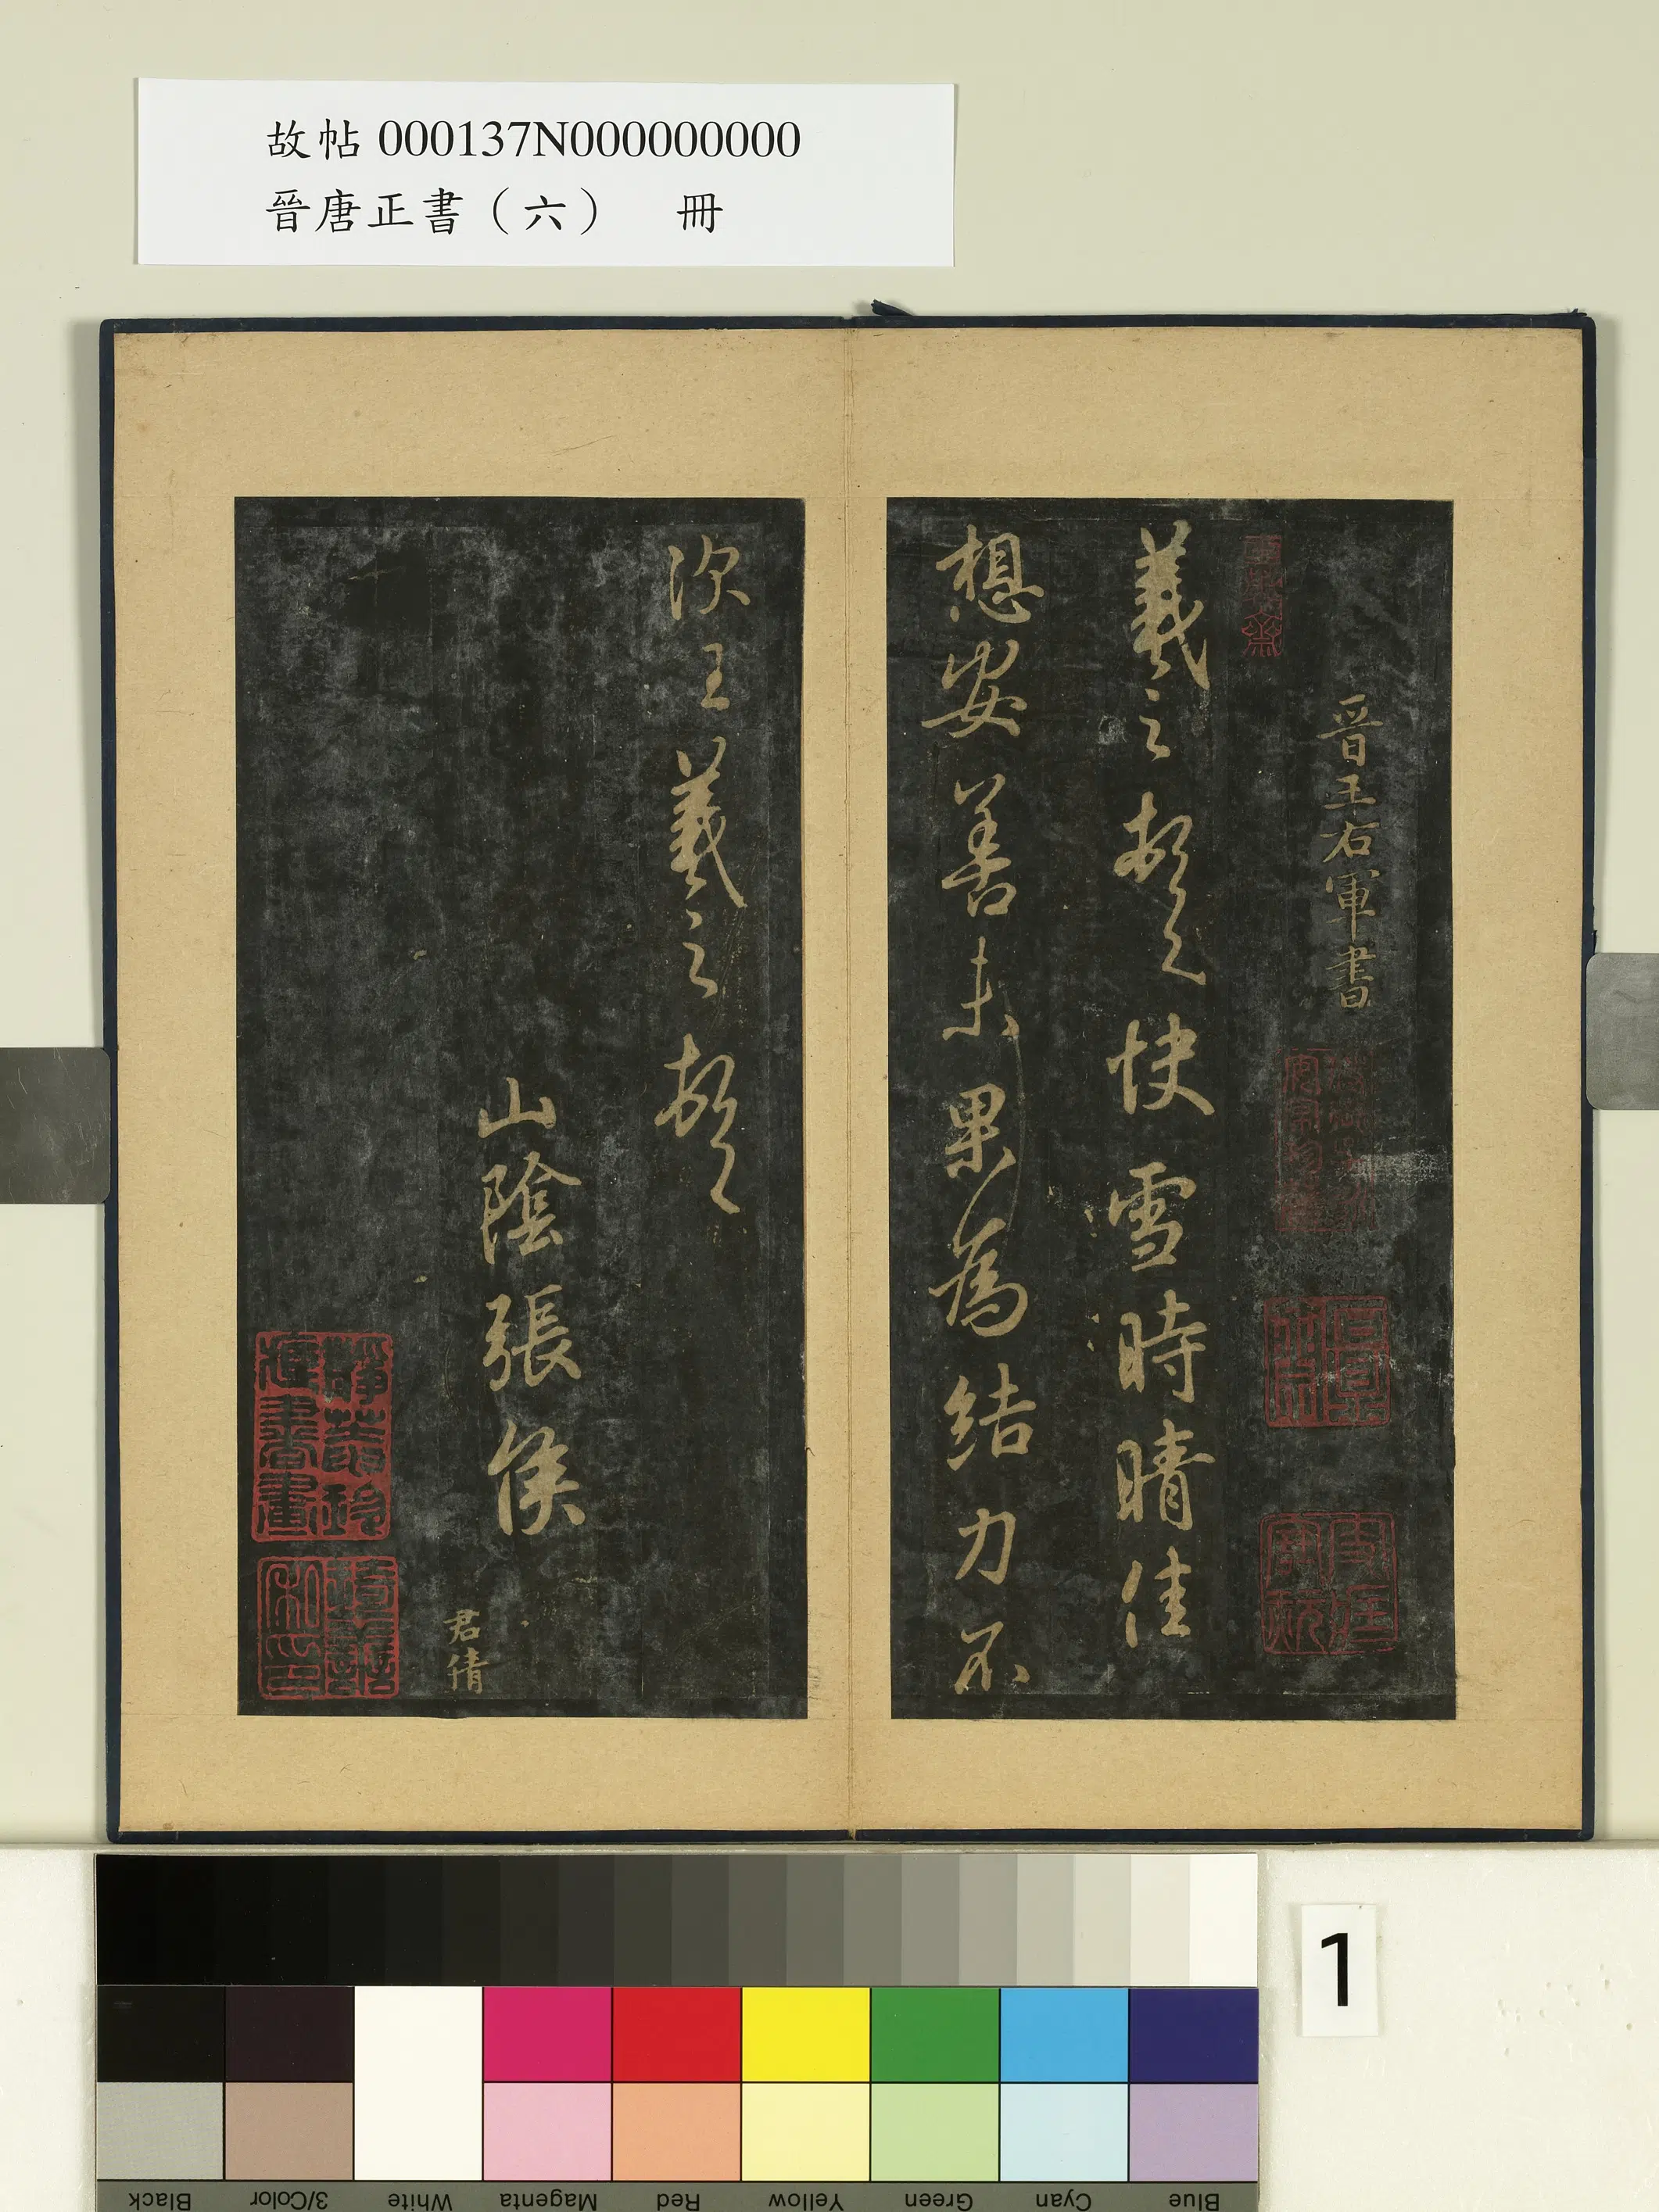 故帖 000137N000000000
晉唐正書（六） 冊
晉王右軍書
羲之頓首快雪時晴佳
想安善未果為結力不
次王羲之頓首
山陰張侯
君倩
1
Black
3/Color
White
Magenta
Red
Yellow
Green
Cyan
Blue